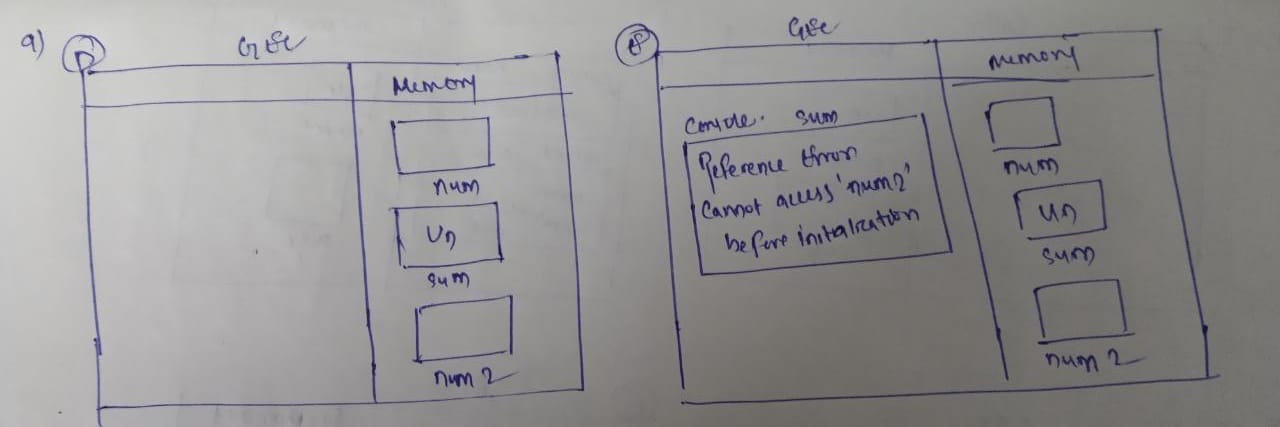 9) D GEC
Memory
num
Un
sum
num 2
E GEC
Memory
Console. sum
Reference Error
Cannot access 'num2'
before initialization
num
Un
sum
num 2